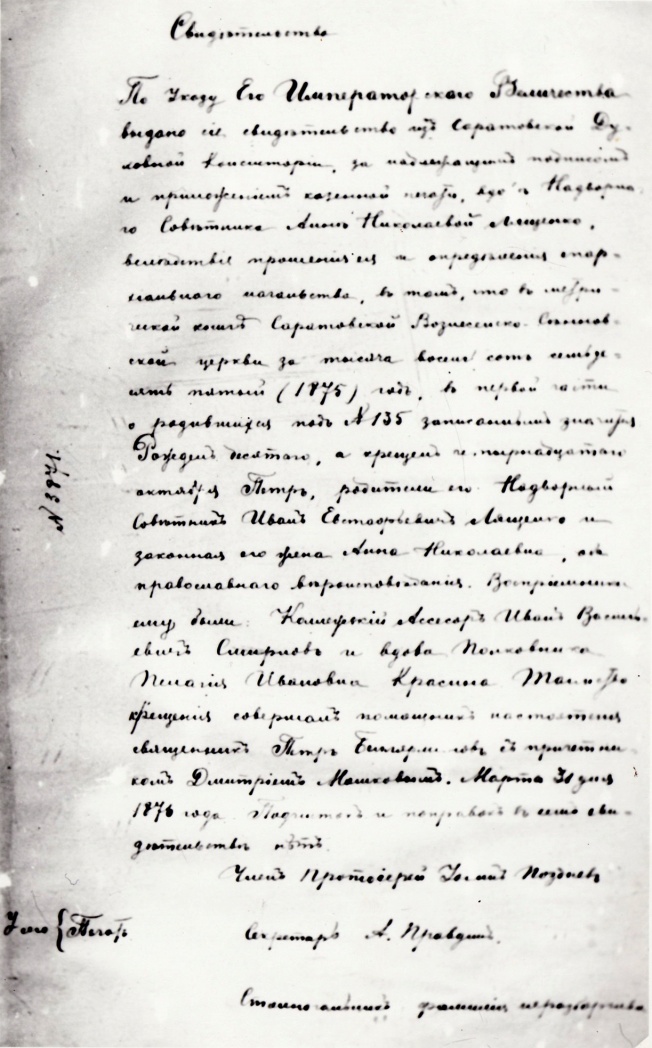 Свидѣтельство
По Указу Его Императорскаго Величества
выдано сіе свидѣтельство изъ Саратовской Ду-
ховной Консисторіи, за надлежащимъ подписомъ
и приложеніемъ казенной печати, вдовѣ Надворна-
го Совѣтника Аннѣ Николаевой Лященко,
вслѣдствіе прошенія ея и опредѣленія епар-
хіальнаго начальства, въ томъ, что въ метри-
ческой книгѣ Саратовской Вознесенско-Сѣннов-
ской церкви за тысяча восемь сотъ семьде-
сятъ пятый (1875) годъ, въ первой части
о родившихся подъ № 135 записаннымъ значится
Рожденъ десятаго, а крещенъ четырнадцатаго
октября Петръ, родители его Надворный
Совѣтникъ Иванъ Евстафьевичъ Лященко и
законная его жена Анна Николаевна, оба
православнаго вѣроисповѣданія. Воспріемники
ему были: Коллежскій Ассесоръ Иванъ Василь-
евичъ Смирновъ и вдова Полковника
Пелагія Ивановна Красина Таинство
крещенія совершалъ помощникъ настоятеля
священникъ Петръ съ причетни-
комъ Дмитріемъ Мошковымъ. Марта 31 дня
1876 года. Подчистокъ и поправокъ въ семъ сви-
дѣтельствѣ нѣтъ.
Членъ Протоіерей Поздневъ
№ 3871.
У сего { Печать
Секретарь А. Правдинъ.
Столоначальникъ фамилія неразборчива